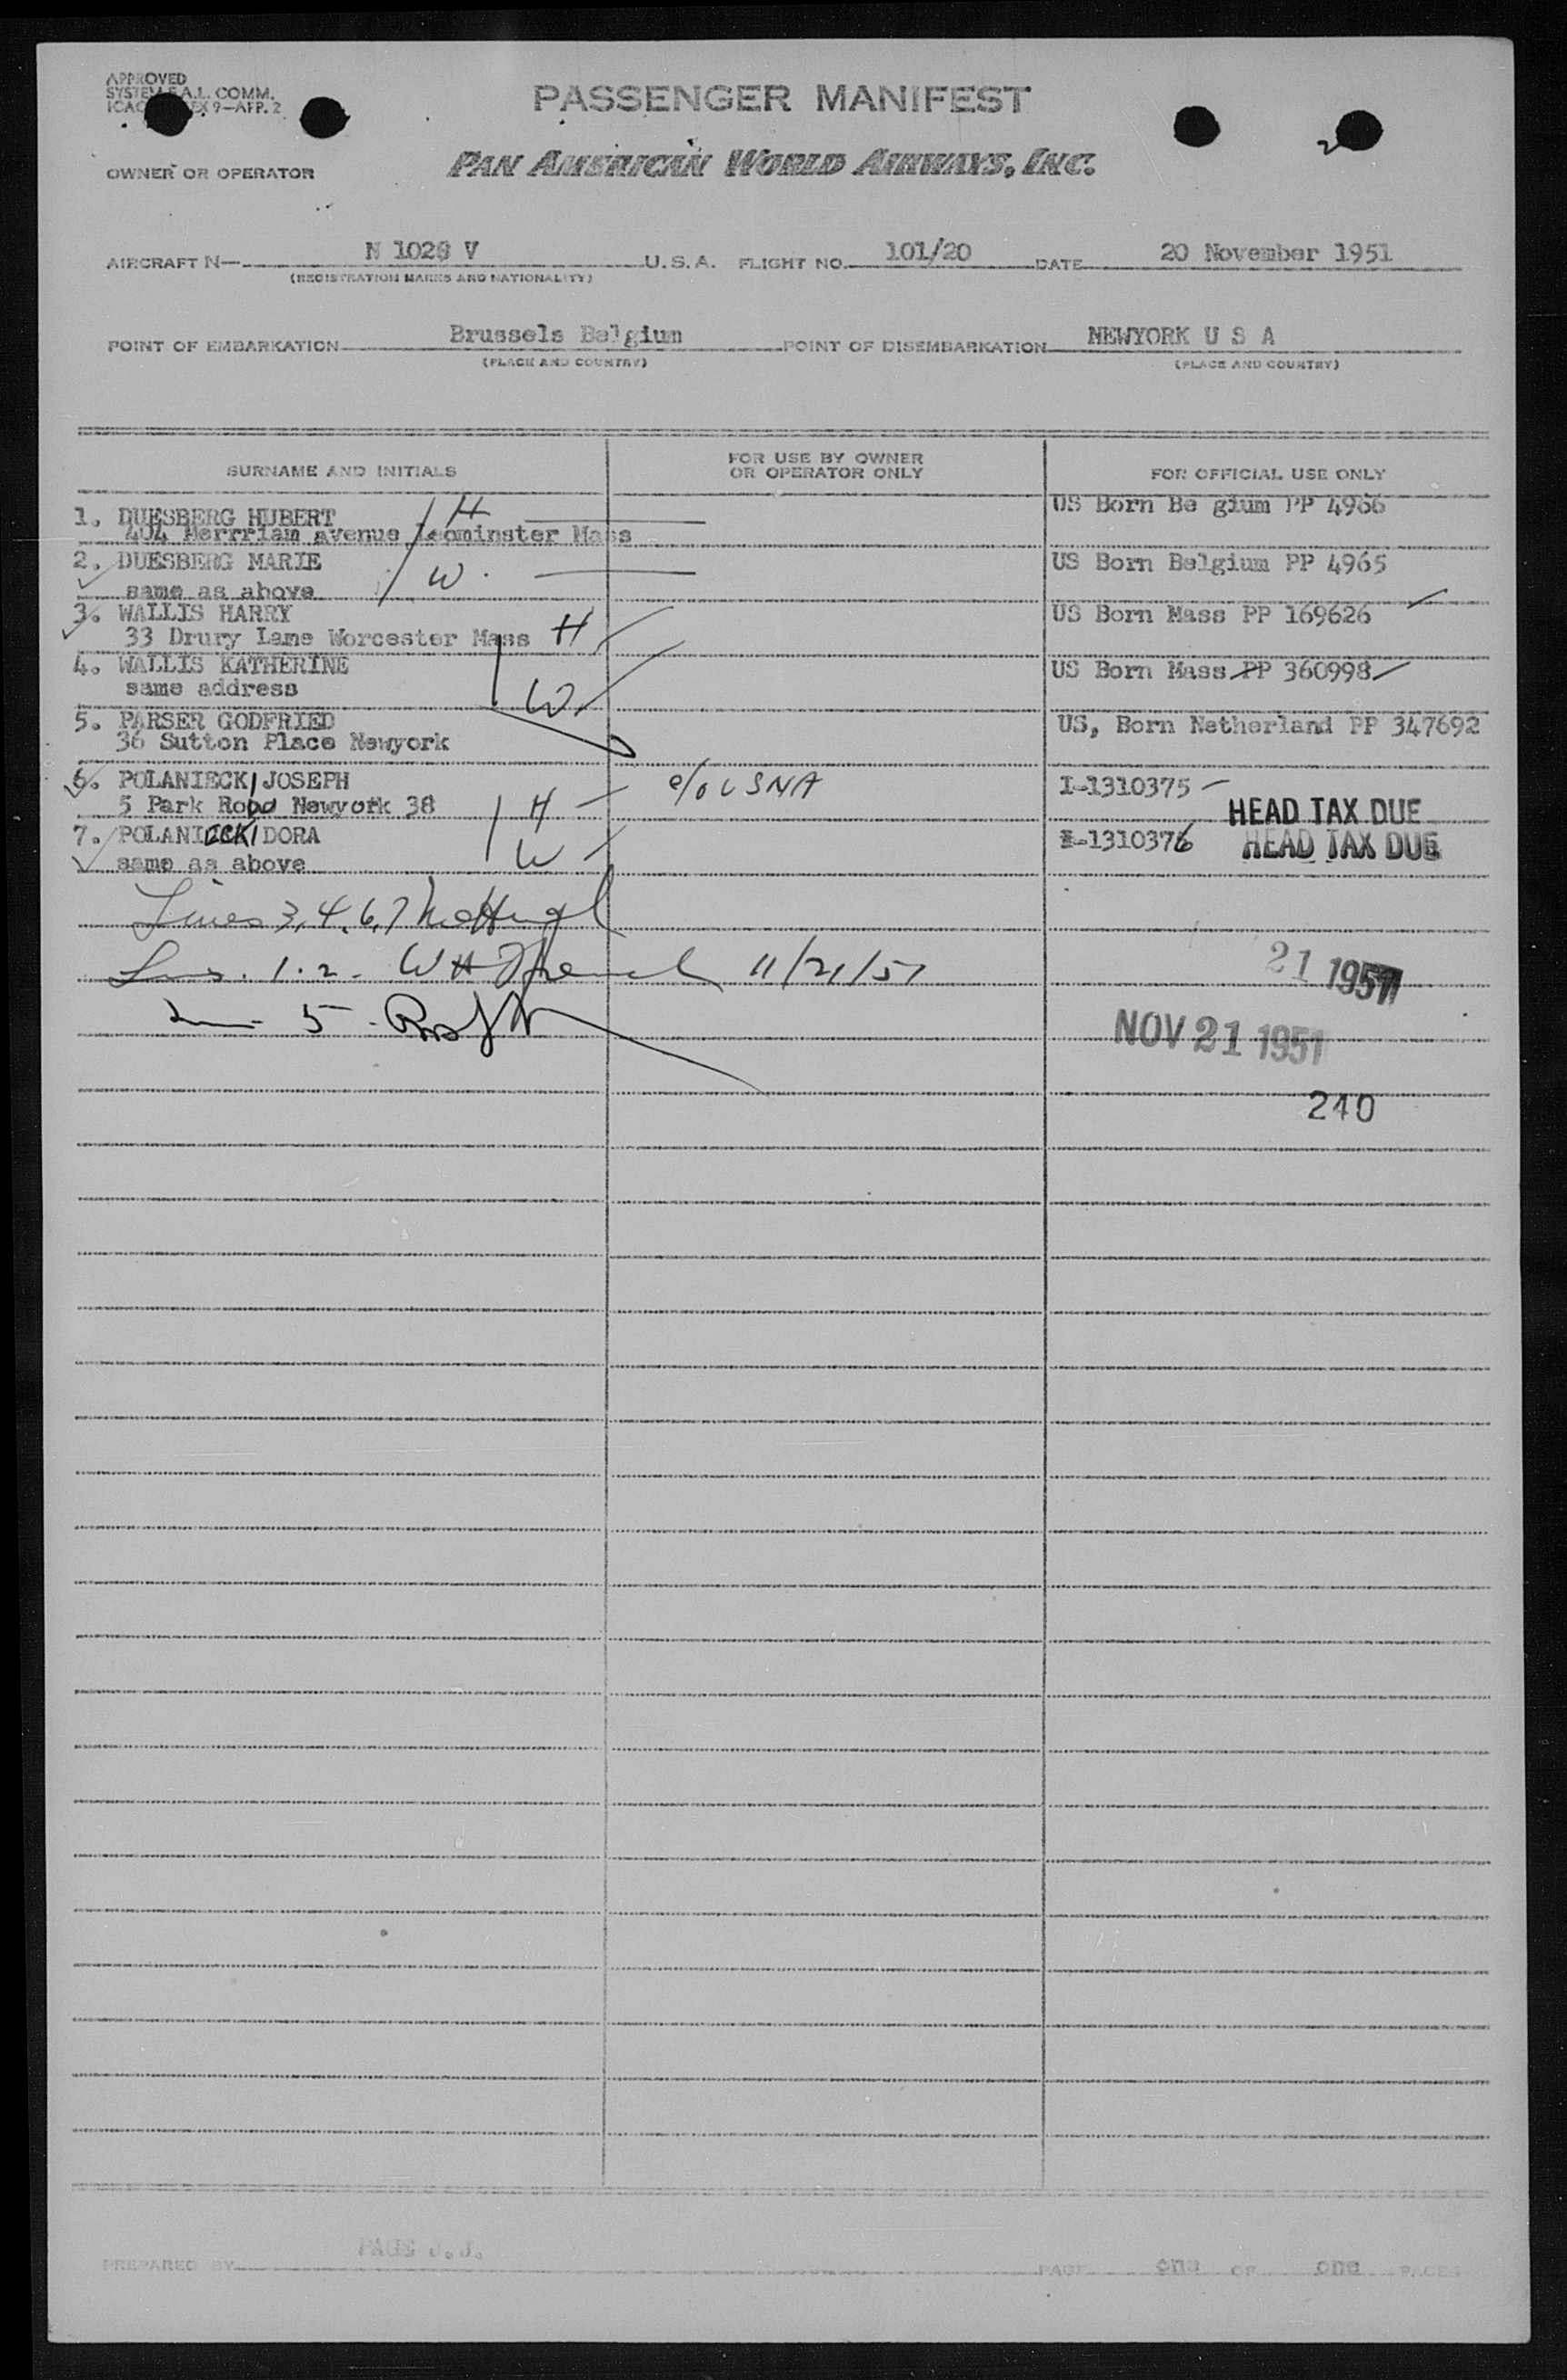 APPROVED
SYSTEM F.A.L. COMM.
9—AFP. 2
PASSENGER MANIFEST
OWNER OR OPERATOR PAN AMERICAN WORLD AIRWAYS, INC.
AIRCRAFT N— N 1028 V U.S.A. FLIGHT NO. 101/20 DATE 20 November 1951
(REGISTRATION MARKS AND NATIONALITY)
POINT OF EMBARKATION Brussels Belgium POINT OF DISEMBARKATION NEWYORK U S A
(PLACE AND COUNTRY) (PLACE AND COUNTRY)
SURNAME AND INITIALS FOR USE BY OWNER OR OPERATOR ONLY FOR OFFICIAL USE ONLY
1. DUESBERG HUBERT H US Born Be gium PP 4966
404 Merrriam avenue Leominster Mass
2. DUESBERG MARIE W. US Born Belgium PP 4965
same as above
3. WALLIS HARRY US Born Mass PP 169626
33 Drury Lane Worcester Mass H
4. WALLIS KATHERINE US Born Mass PP 360998
same address W
5. PARSER GODFRIED US, Born Netherland PP 347692
36 Sutton Place Newyork
6. POLANIECKI JOSEPH c/o USNA I-1310375
5 Park Road Newyork 38 H HEAD TAX DUE
7. POLANIECKI DORA I-1310376 HEAD TAX DUE
same as above W
Lines 3, 4, 6, 7
1. 2. 11/21/51
21 1951
5
NOV 21 1951
240
PREPARED BY PAGE J.J. PAGE one OF one PAGES